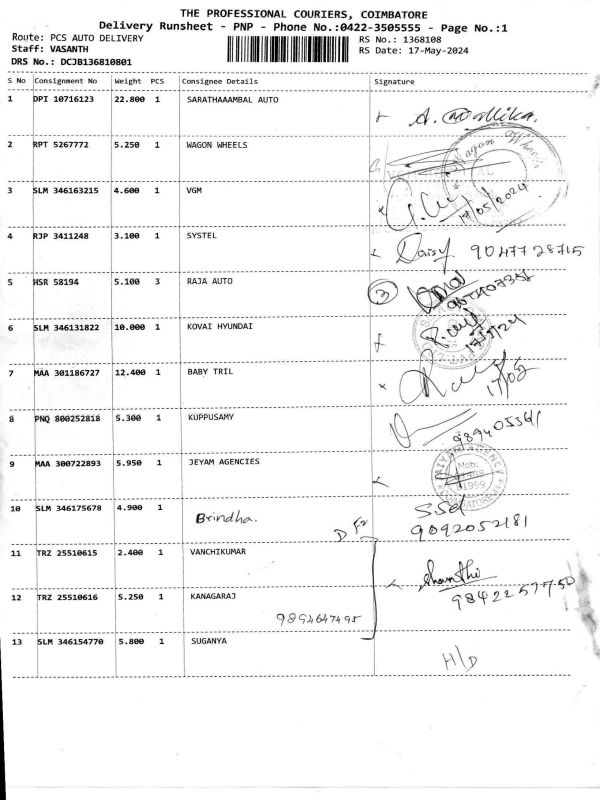 THE PROFESSIONAL COURIERS, COIMBATORE
Delivery Runsheet - PNP - Phone No.:0422-3505555 - Page No.:1
Route: PCS AUTO DELIVERY RS No.: 1368108
Staff: VASANTH RS Date: 17-May-2024
DRS No.: DCJB136810801
S No Consignment No Weight PCS Consignee Details Signature
1 DPI 10716123 22.800 1 SARATHAAAMBAL AUTO
2 RPT 5267772 5.250 1 WAGON WHEELS
Wagon Wheels
3 SLM 346163215 4.600 1 VGM
17/05/2024
4 RJP 3411248 3.100 1 SYSTEL Daisy 9047728715
5 HSR 58194 5.100 3 RAJA AUTO 3
6 SLM 346131822 10.000 1 KOVAI HYUNDAI
7 MAA 301186727 12.400 1 BABY TRIL
17/05
8 PNQ 800252818 5.300 1 KUPPUSAMY
9 MAA 300722893 5.950 1 JEYAM AGENCIES
Mob:
10 SLM 346175678 4.900 1 Brindha.
9092052181
11 TRZ 25510615 2.400 1 VANCHIKUMAR
Shanthi
12 TRZ 25510616 5.250 1 KANAGARAJ
9894647495
13 SLM 346154770 5.800 1 SUGANYA
H/D